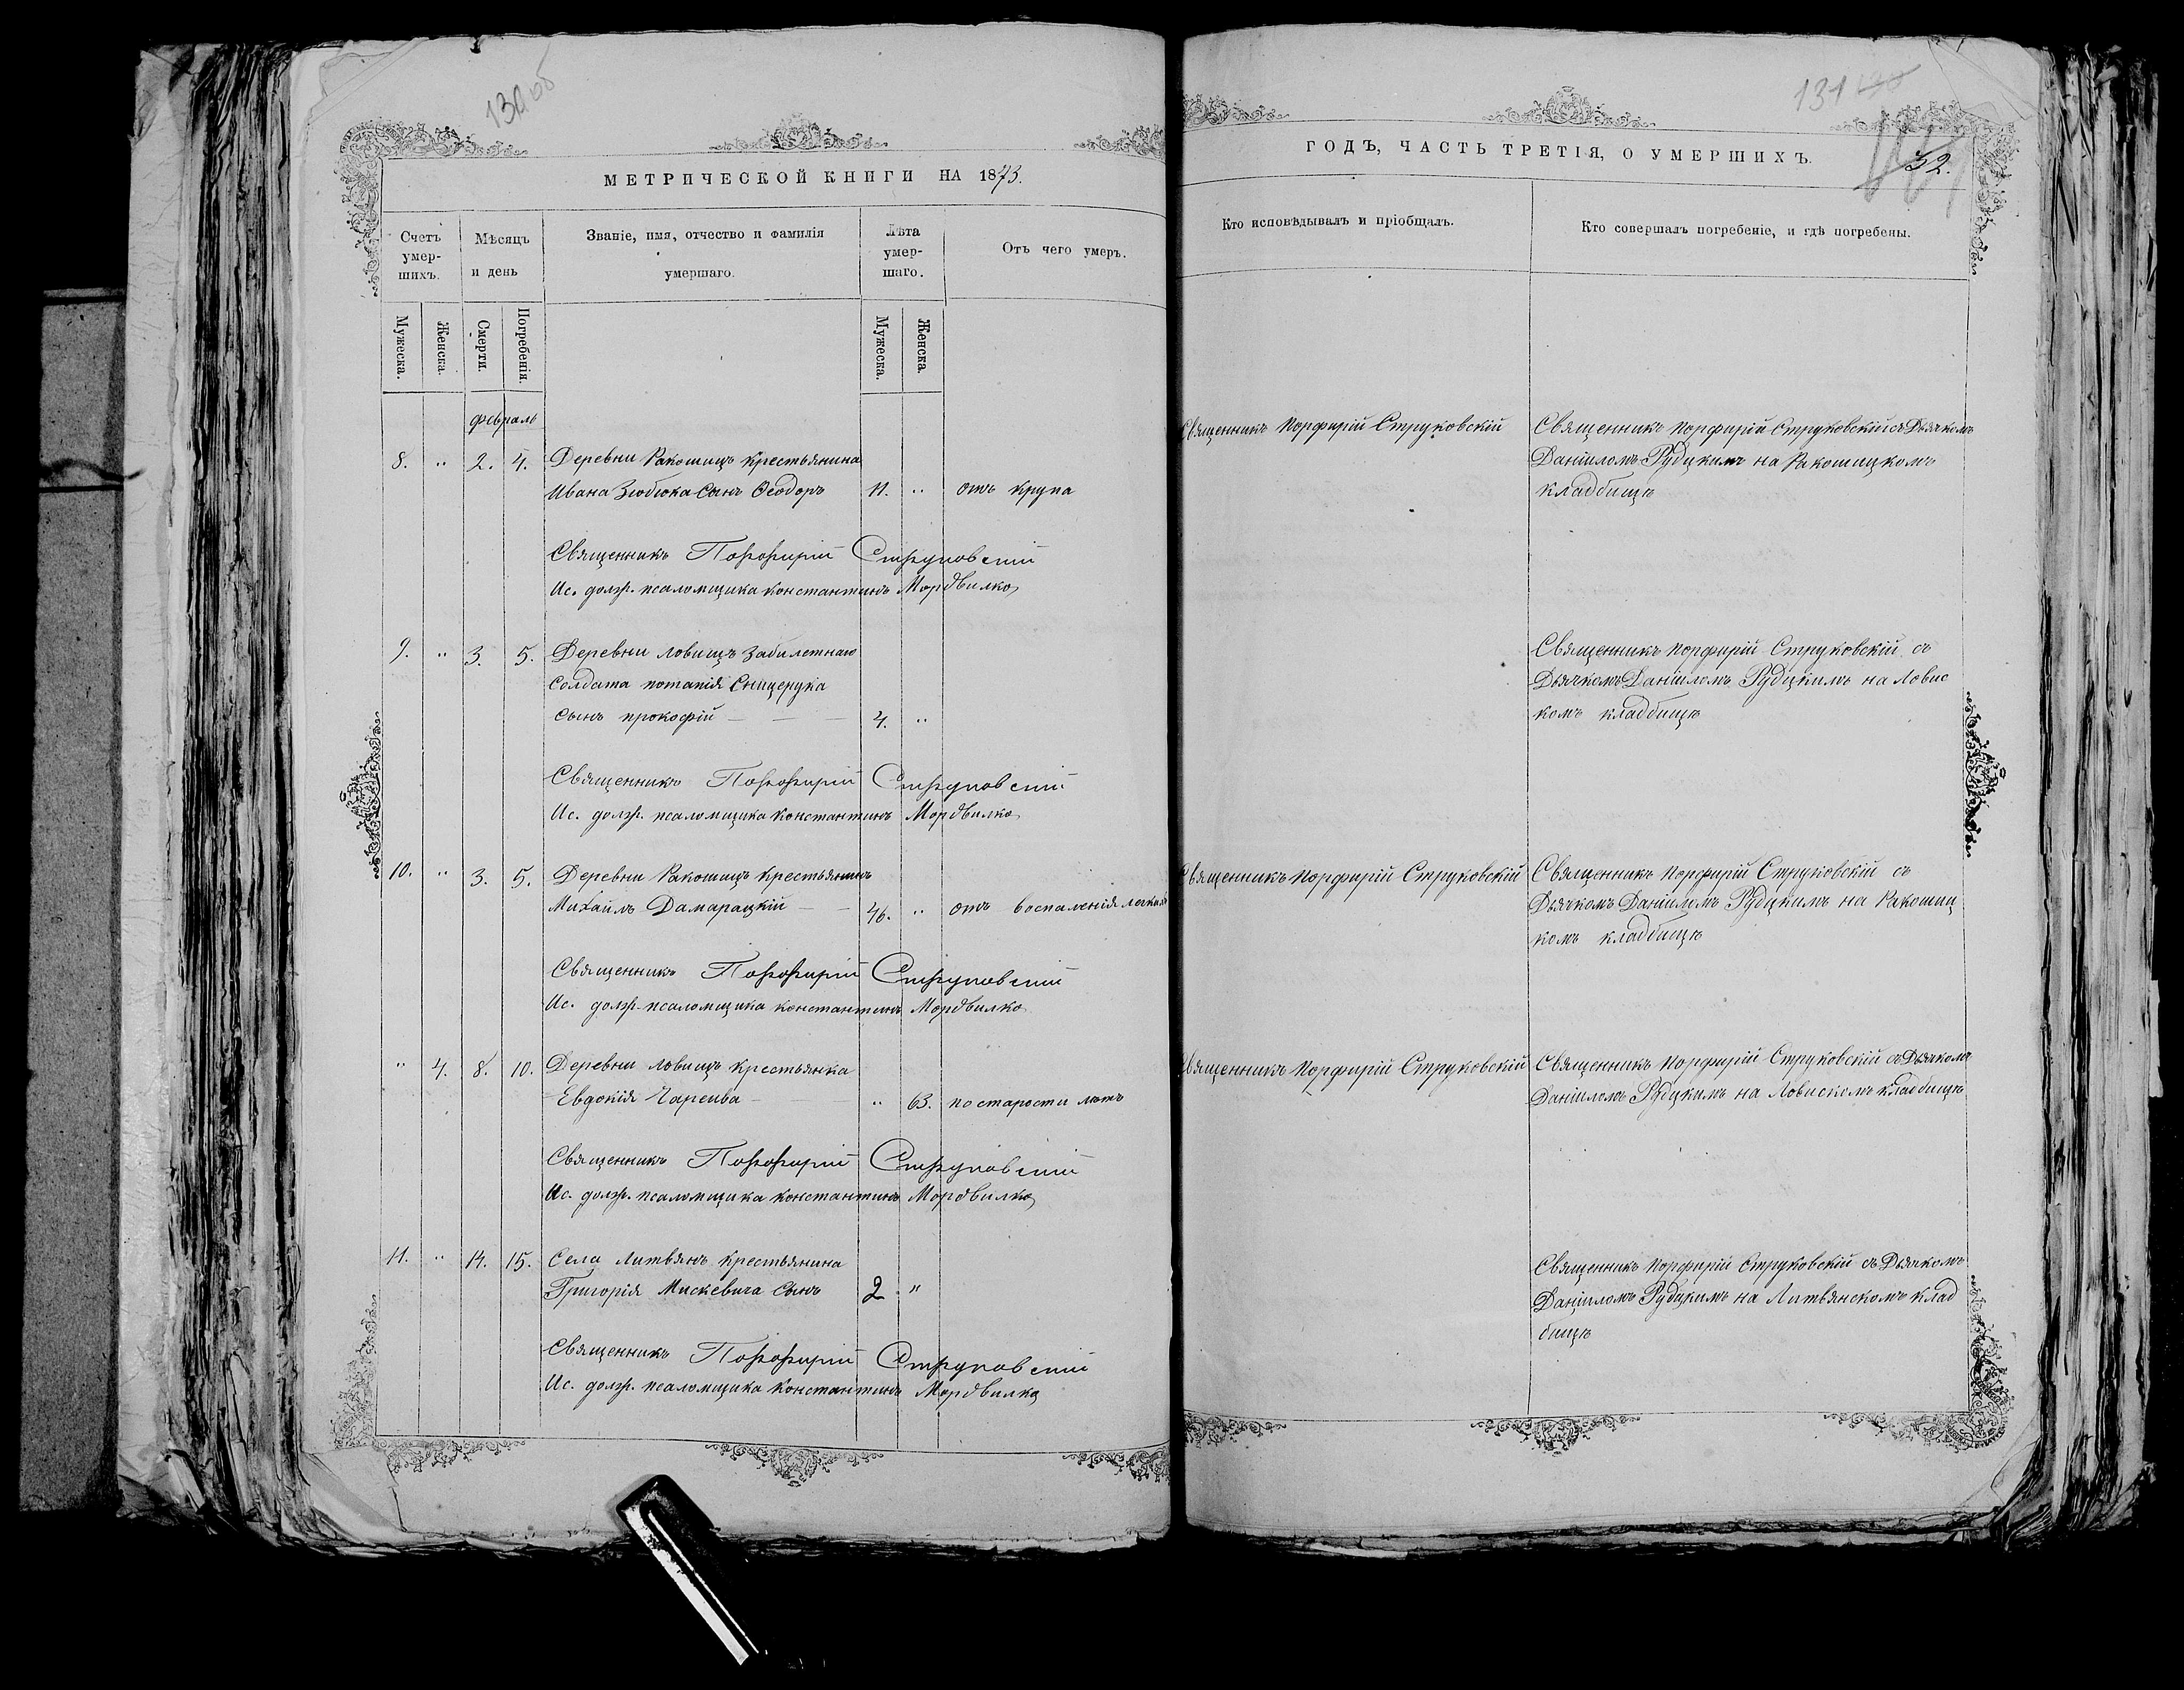 130 об
МЕТРИЧЕСКОЙ КНИГИ НА 1873.
Счетъ умер-шихъ.
Мѣсяцъ и день
Званіе, имя, отчество и фамилія умершаго.
Лѣта умер-шаго.
Отъ чего умеръ.
Мужеска.
Женска.
Смерти.
Погребенія.
Мужеска.
Женска.
февраль
8. " 2. 4. Деревни Ракошицъ крестьянина
Ивана Зюбюка сынъ Ѳеодоръ 11. " отъ крупа
Священникъ Порфирій Струковскій
Ис. долж. псаломщика Константинъ Мордвилко
9. " 3. 5. Деревни Ловищъ Забилетнаго
Солдата Потапія
сынъ Прокофій 4. "
Священникъ Порфирій Струковскій
Ис. долж. псаломщика Константинъ Мордвилко
10. " 3. 5. Деревни Ракошицъ крестьянинъ
Михаилъ Дамарацкій 46. " отъ воспаленія легкихъ
Священникъ Порфирій Струковскій
Ис. долж. псаломщика Константинъ Мордвилко
" 4. 8. 10. Деревни Ловищъ крестьянка
Евдокія " 63. по старости лѣтъ
Священникъ Порфирій Струковскій
Ис. долж. псаломщика Константинъ Мордвилко
11. " 14. 15. Села Литвянъ крестьянина
Григорія Мискевича сынъ 2 "
Священникъ Порфирій Струковскій
Ис. долж. псаломщика Константинъ Мордвилко
131
ГОДЪ, ЧАСТЬ ТРЕТІЯ, О УМЕРШИХЪ.
32.
Кто исповѣдывалъ и пріобщалъ.
Кто совершалъ погребеніе, и гдѣ погребены.
Священникъ Порфирій Струковскій
Священникъ Порфирій Струковскій съ Дьячкомъ
Даніиломъ Рудцкимъ на Ракошицкомъ
кладбищѣ
Священникъ Порфирій Струковскій съ
Дьячкомъ Даніиломъ Рудцкимъ на Ловис
комъ кладбищѣ
Священникъ Порфирій Струковскій
Священникъ Порфирій Струковскій съ
Дьячкомъ Даніиломъ Рудцкимъ на Ракошиц
комъ кладбищѣ
Священникъ Порфирій Струковскій
Священникъ Порфирій Струковскій съ Дьячкомъ
Даніиломъ Рудцкимъ на Ловискомъ кладбищѣ
Священникъ Порфирій Струковскій съ Дьячкомъ
Даніиломъ Рудцкимъ на Литвянскомъ клад
бищѣ